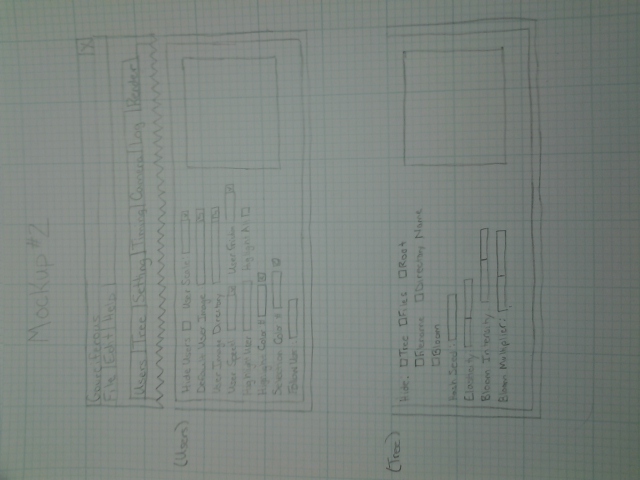 Mockup #2
X
File Edit Help
Users Tree Setting Timing Camera Log Render
(Users)
Hide Users User Scale:
Default User Image
User Image Directory
User Speed User Friction
Highlight User Highlight All
Highlight Color #
Selection Color #
Follow User:
(Tree)
Hide: Tree Files Root
Filename Directory Name
Bloom
Hash Seed:
Elasticity:
Bloom Intensity:
Bloom Multiplier: